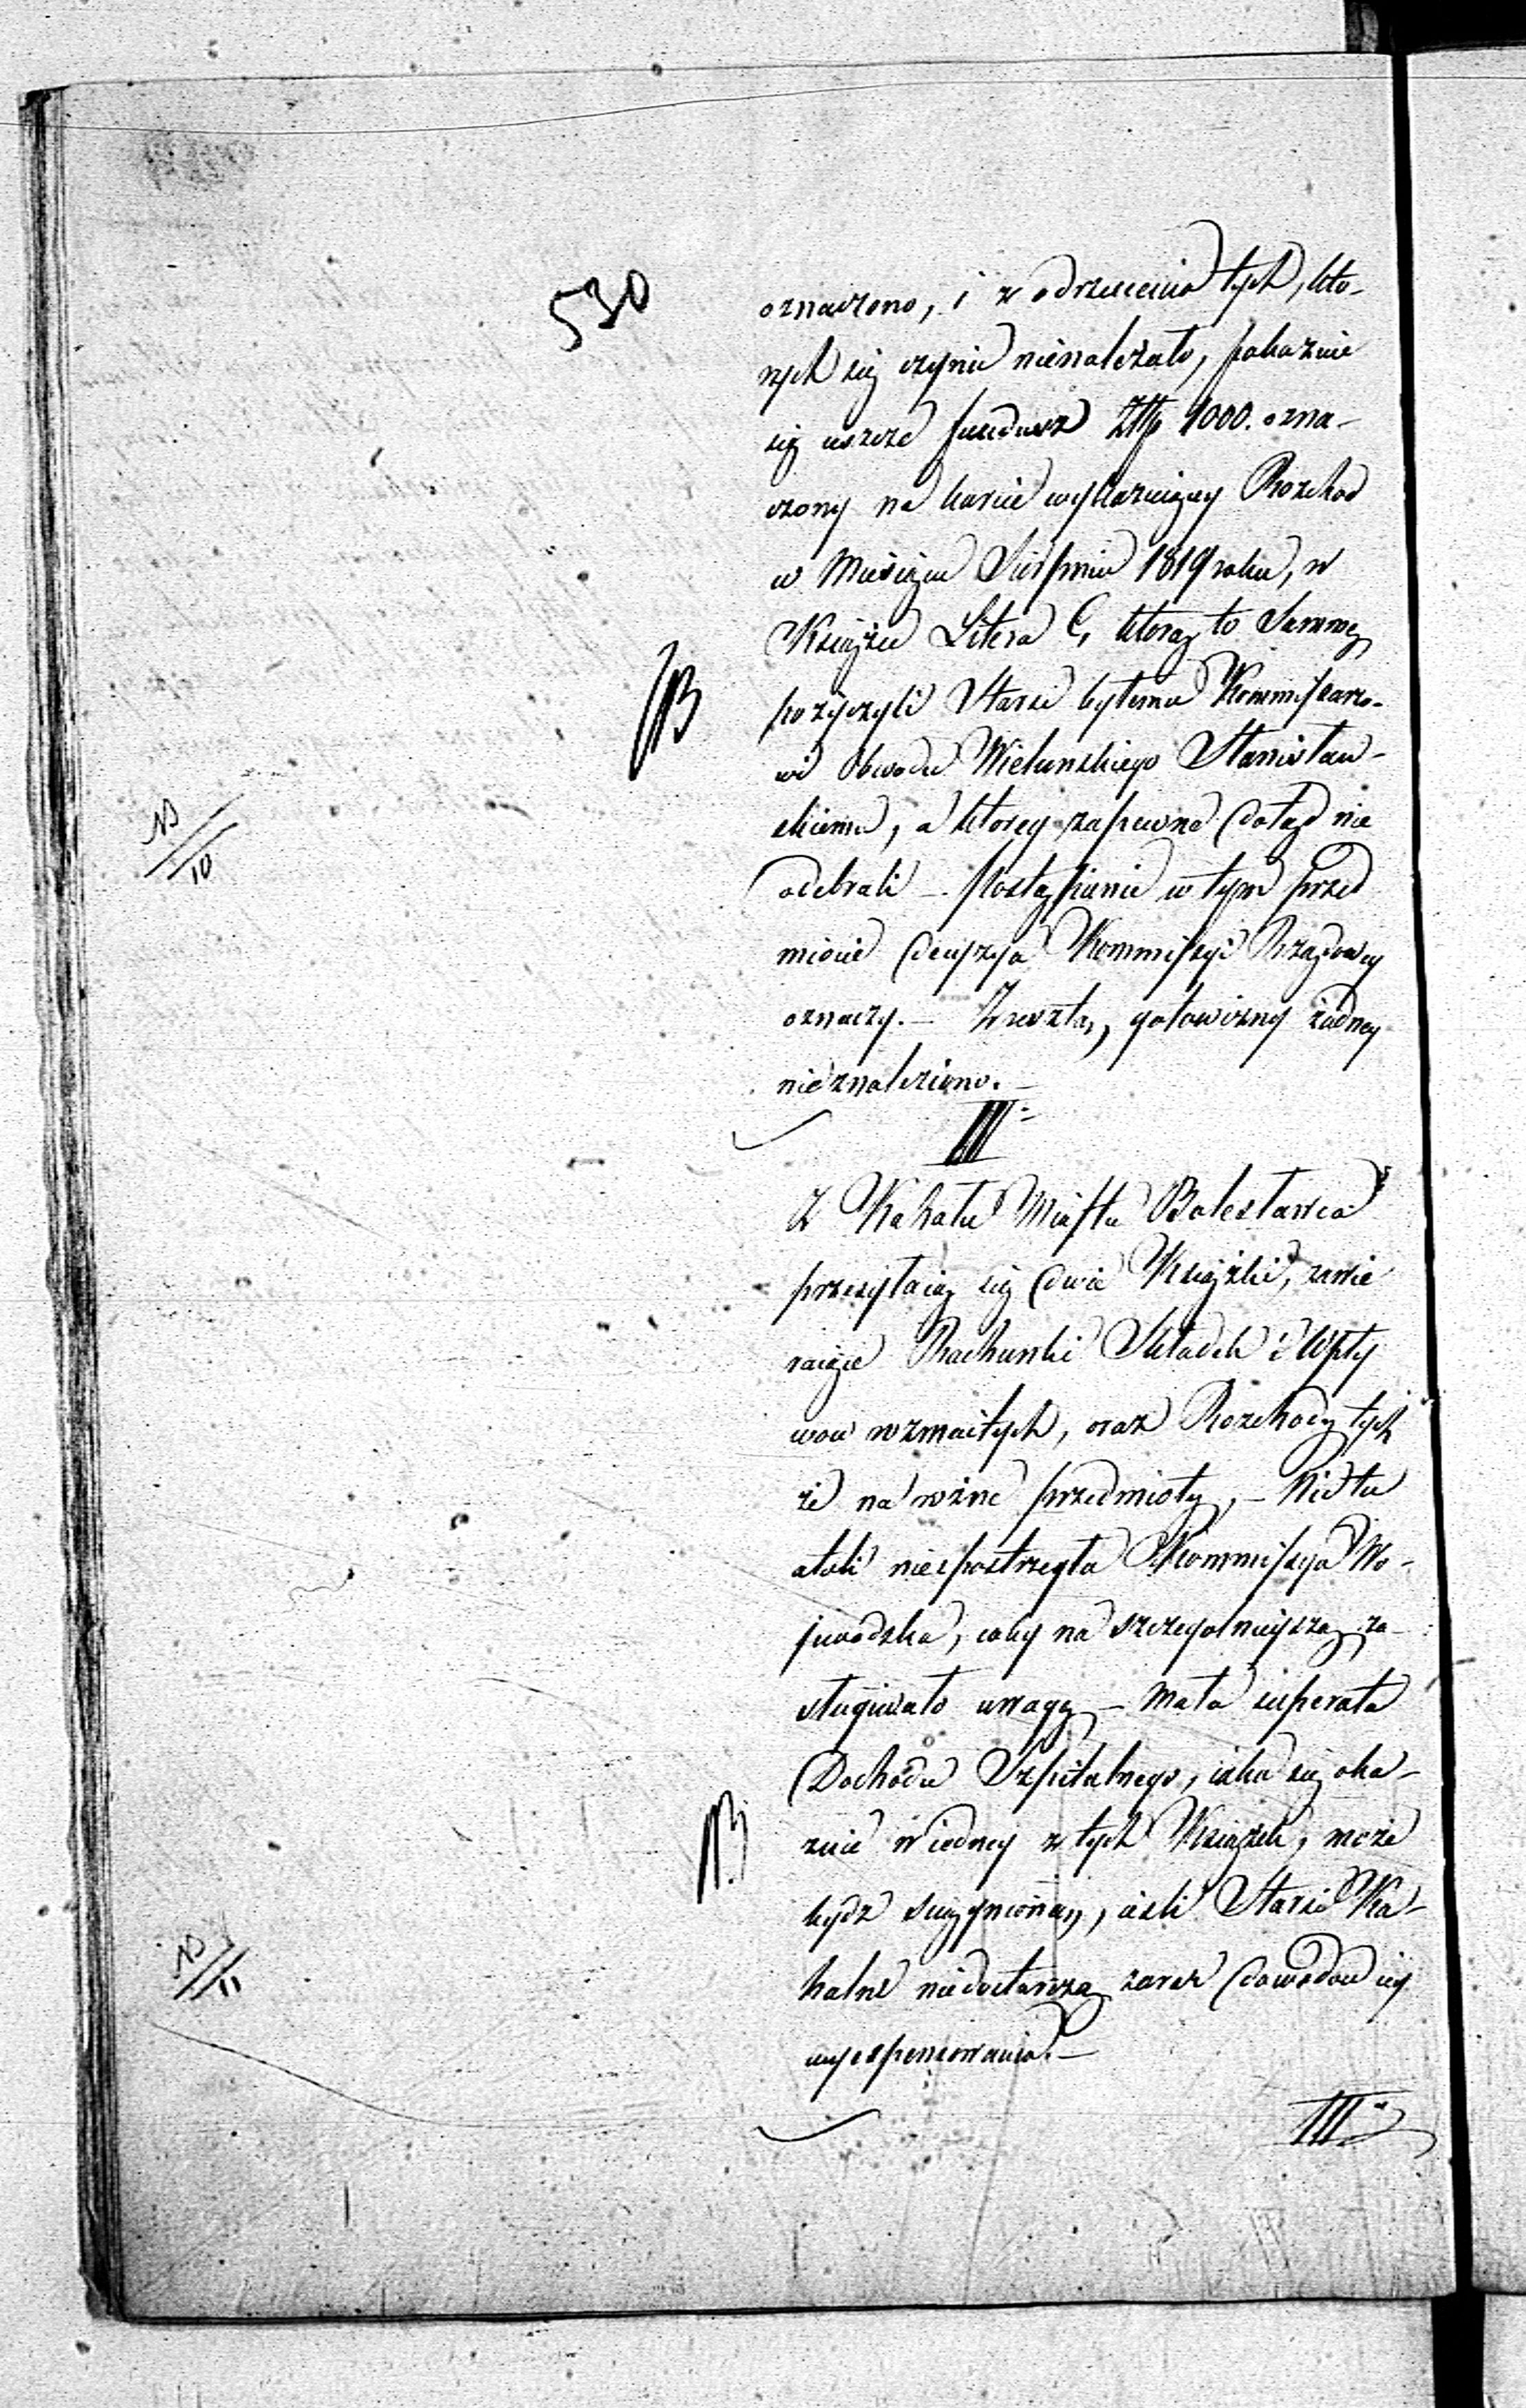 530
oznaczono, i z odrzucenia tych, któ-
rych się czynić nienależało, pokazuie
się ieszcze fundusz Złtp 1000. ozna-
czony na karcie wykazuiącey Rozchod
w Miesiącu Sierpniu 1819 roku, w
Książce Litera C, ktorą to Summę
pożyczyli Starsi bytemu Kommissarzo-
wi Obwodu Wielunskiego Stanisław-
skiemu, a ktorey zapewne dotąd nie
odebrali — Postąpienie w tym przed
miocie decyzya Kommissyi Rządowey
oznaczy. — Zresztą, gotowizny żadney
nieznaleziono. —
NB
NB
10
II
Z Kahału Miasta Bolesławca
przesyłaią się dwie Książki, zawie
raiące Rachunki Składek i Wpły
wow rozmaitych, oraz Rozchody tych
że na rożne przedmioty, — Nic tu
atoli niespostrzegła Kommissya Wo-
jewodzka, coby na szczegolnieyszą za-
sługiwało uwagę — Mała superata
Dochodu Szpitalnego, iaka się oka-
zuie w iedney z tych Książek, może
bydź ściągnioną, ieśli Starsi Ka-
halni niedostarczą zaraz dowodow iey
wyexpensowania. —
NB
NB
11
III